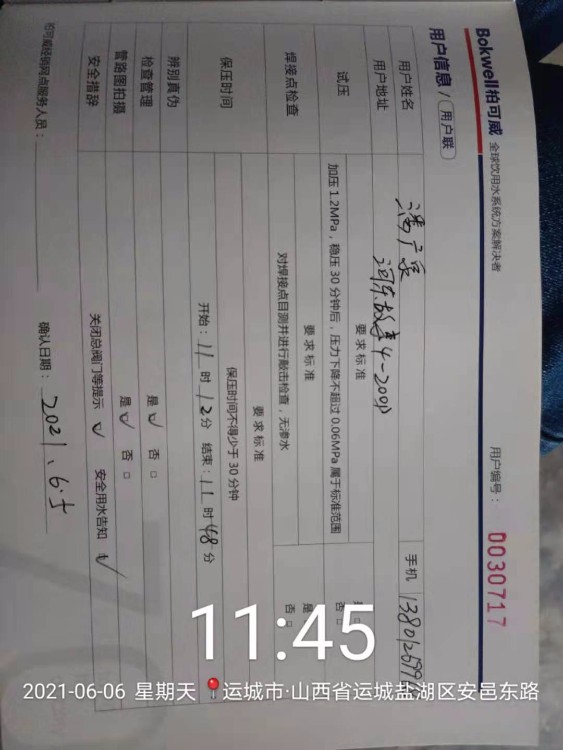 Bokwell柏可威 全球饮用水系统方案解决者
用户信息 / 用户联
用户编号： 0030717
用户姓名
手机
用户地址 河东故事4-2001
试压
要求标准
加压1.2MPa，稳压30分钟后，压力下降不超过0.06MPa属于标准范围
是
否
焊接点检查
要求标准
对焊接点目测并进行敲击检查，无渗水
是
否
保压时间
要求标准
保压时间不得少于30分钟
开始：11时12分 结束：11时48分
辨别真伪
检查管理 是 ☑ 否 □
管路图拍摄 是 ☑ 否 □
安全措辞 关闭总阀门等提示 ☑ 安全用水告知 ☑
柏可威经销网点服务人员：
确认日期：2021.6.5
11:45
2021-06-06 星期天 运城市·山西省运城盐湖区安邑东路